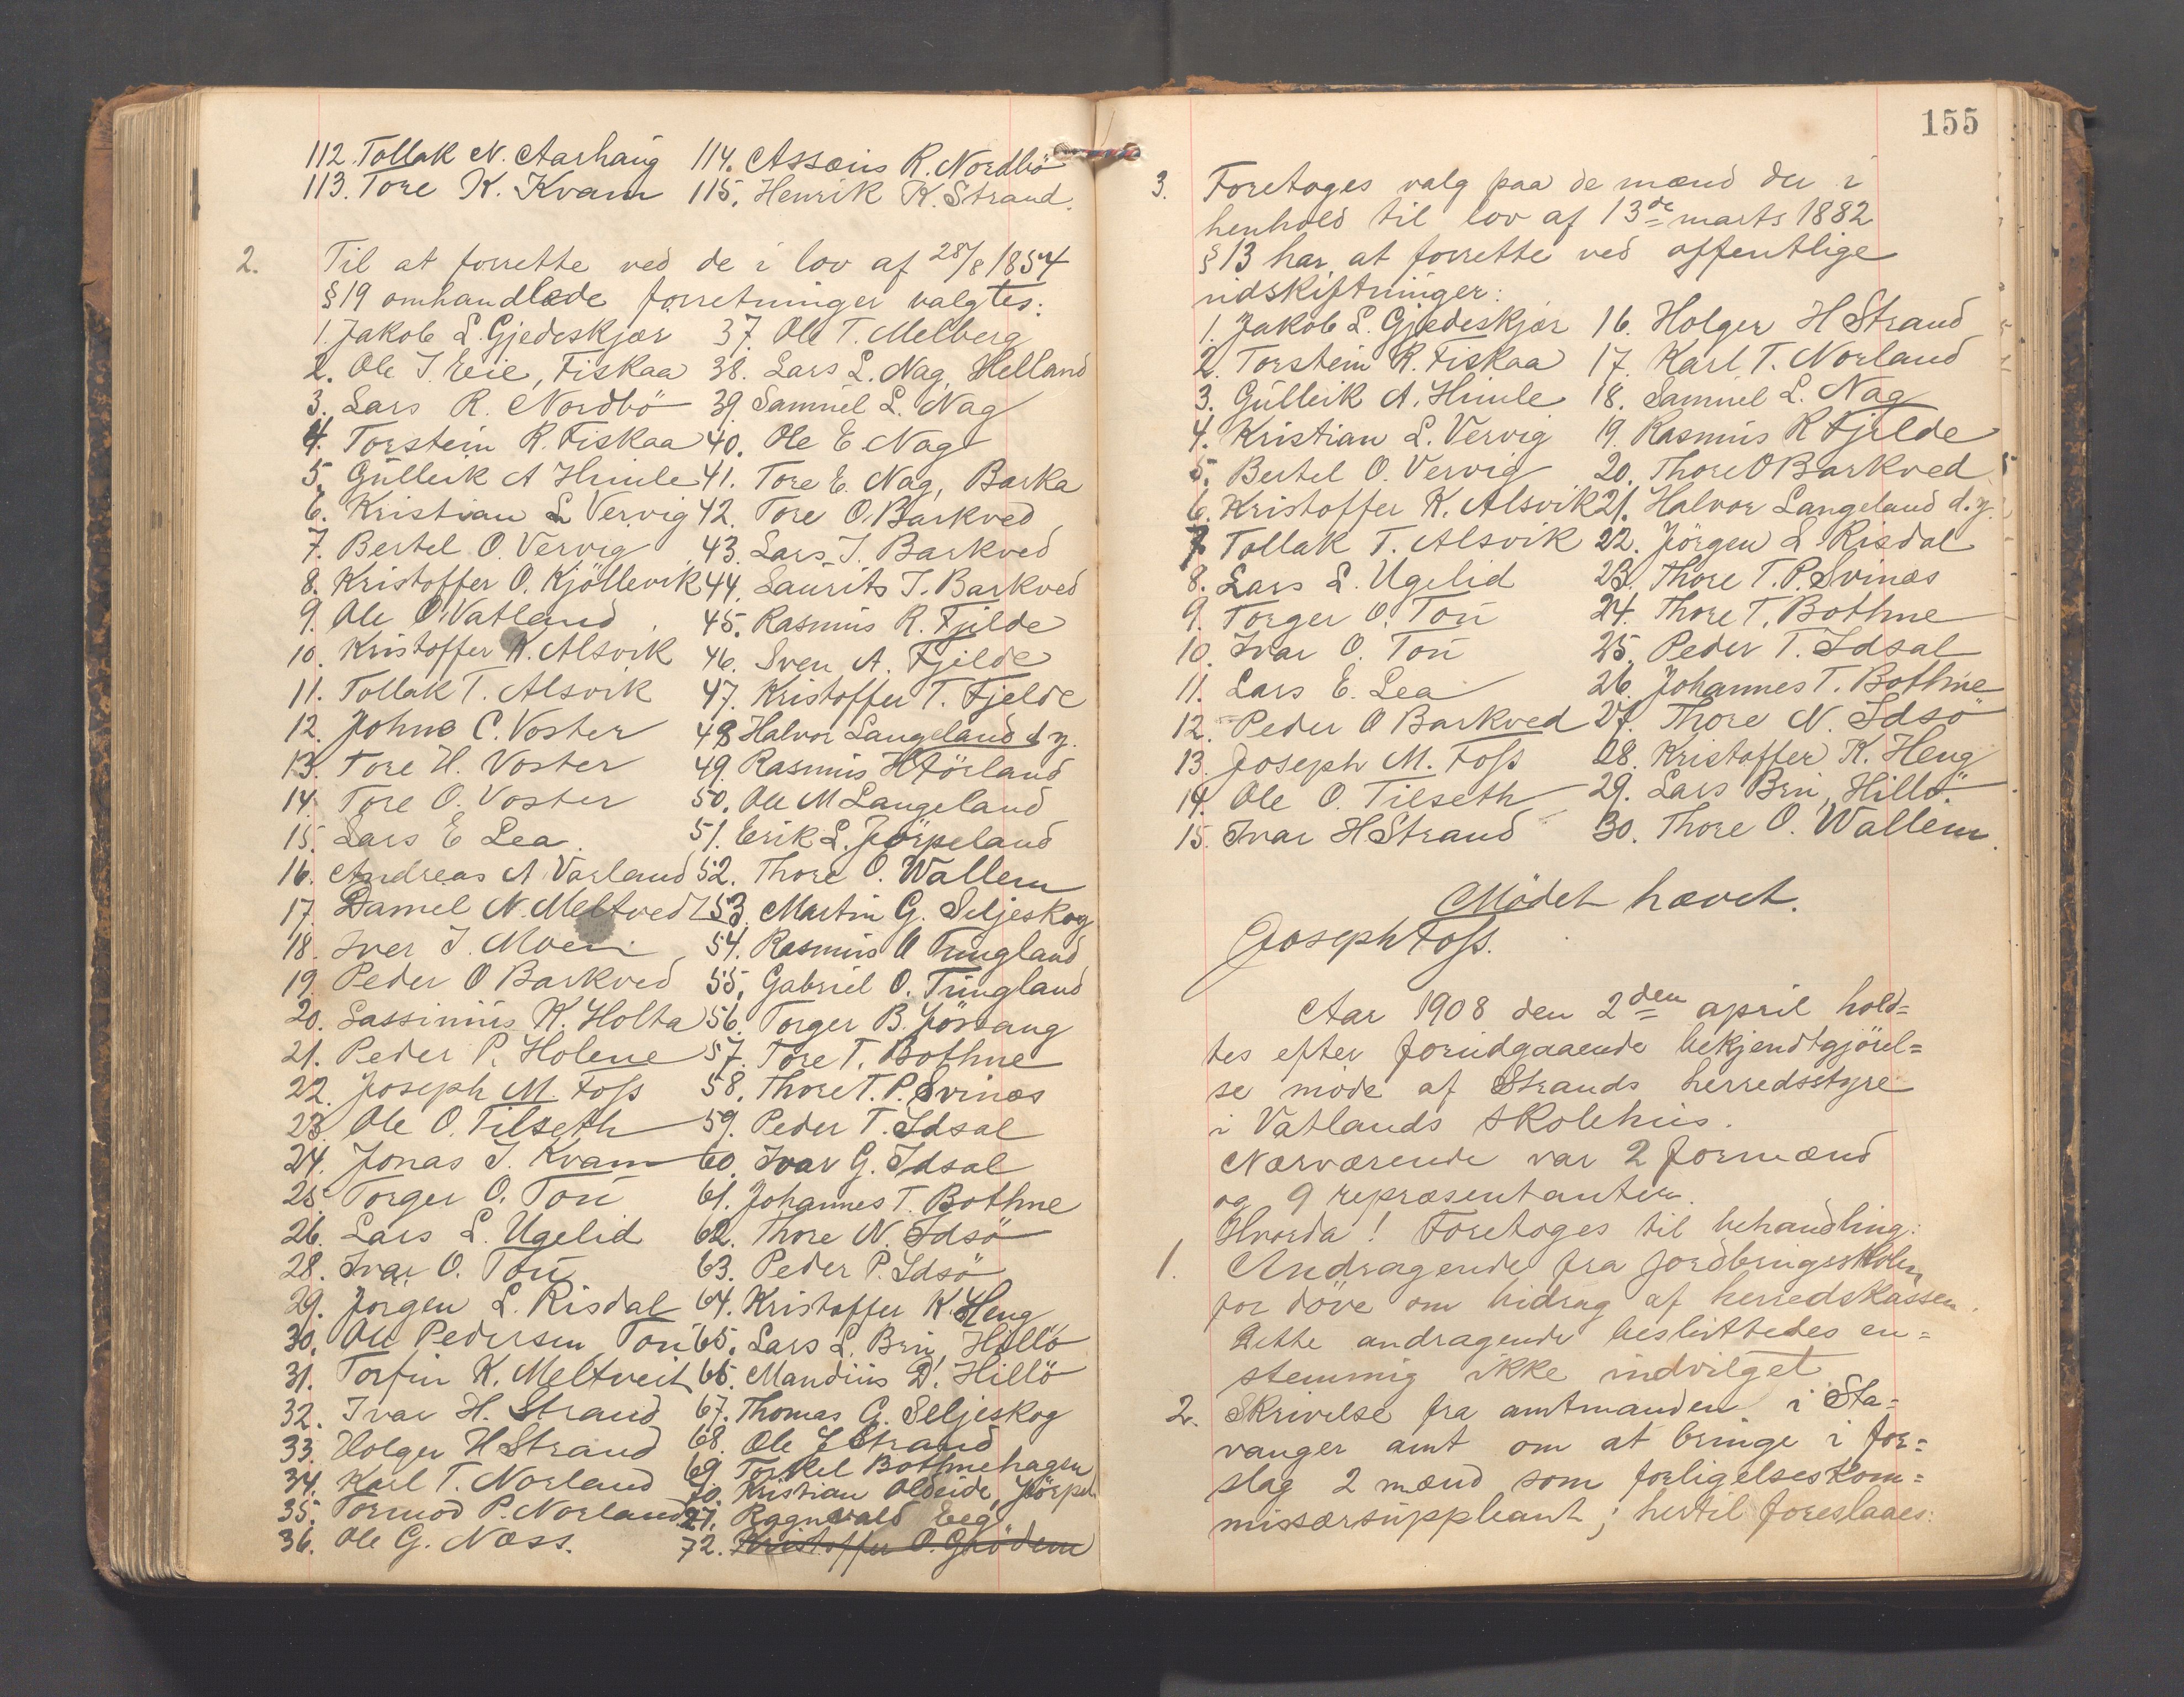 112. Tollak N. Aarhaug 114. Assæus R. Nordbö
113. Tore K. Kvam 115. Henrik K. Strand.
2. Til at forrette ved de i lov af 28/8 1854
§ 19 omhandlede forretninger valgtes:
1. Jakob L. Gjedeskjær
2. Ole J. Eie, Fiskaa
3. Lars R. Nordbö
4. Torstein R. Fiskaa
5. Gulleik A Hiimle
6. Kristian L Vervig
7. Bertel O. Vervig
8. Kristoffer O. Kjöllevik
9. Ole O. Vatland
10. Kristoffer K. Alsvik
11. Tollak T. Alsvik
12. Johne C. Voster
13. Tore H. Voster
14. Tore O. Voster
15. Lars E Lea.
16. Andreas A Varland
17. Daniel N. Meltved
18. Iver J. Moen
19. Peder O Barkved
20. Sassinius K. Holta
21. Peder P. Holene
22. Joseph M. Foss
23. Ole O. Tilseth
24. Jonas J. Kvam
25. Torger O. Tou
26. Lars L. Ugelid
28. Ivar O. Tou
29. Jörgen L. Risdal
30. Ole Pedersen Tou
31. Torfin K. Meltveit
32. Ivar H. Strand
33. Holger H Strand
34. Karl T. Norland
35. Tormod P. Norland
36. Ole G. Næss.
37. Ole T. Melberg
38. Lars L. Nag, Helland
39. Samuel L. Nag
40. Ole E Nag
41. Tore E. Nag, Barka
42. Tore O. Barkved
43. Lars J. Barkved
44. Laurits J. Barkved
45. Rasmus R. Fjelde
46. Sven A. Fjelde
47. Kristoffer T. Fjelde
48 Halvor Langeland d. y.
49. Rasmus H Förland
50. Ole M Langeland
51. Erik L. Jörpeland
52. Thore O. Wallem
53. Martin G. Seljeskog
54. Rasmus O Tungland
55. Gabriel O. Tungland
56. Torger B. Jössang
57. Tore T. Bothne
58. Thore T. P. Svinæs
59. Peder T. Idsal
60. Ivar G. Idsal
61. Johannes T. Bothne
62. Thore N. Idsö
63. Peder P. Idsö
64. Kristoffer K. Heng
65. Lars L. Bru, Hillö
66. Mandius D. Hillö
67. Thomas G. Seljeskog
68. Ole J Strand
69. Torkel Bothnehagen
70. Kristian Aldeide, Jörpel.
71. Ragnvald Eeg
72. Kristoffer O. Grödem
155
3. Foretoges valg paa de mænd der i
henhold til lov af 13de marts 1882
§ 13 har at forrette ved offentlige
udskiftninger:
1. Jakob L. Gjedeskjær
2. Torstein R. Fiskaa
3. Gulleik A. Hiimle
4. Kristian L. Vervig
5. Bertel O. Vervig
6. Kristoffer K. Alsvik
7 Tollak T. Alsvik
8. Lars L. Ugelid
9. Torger O. Tou
10. Ivar O. Tou
11. Lars E. Lea
12. Peder O Barkved
13. Joseph M. Foss
14. Ole O. Tilseth
15. Ivar H Strand
16. Holger H Strand
17. Karl T. Norland
18. Samuel L. Nag
19. Rasmus R Fjelde
20. Thore O Barkved
21. Halvor Langeland d. y.
22. Jörgen L Risdal
23. Thore T. P. Svinæs
24. Thore T. Bothne
25. Peder T. Idsal
26. Johannes T. Bothne
27. Thore N. Idsö
28. Kristoffer K. Heng
29. Lars Bru, Hillö.
30. Thore O. Wallem.
Mödet hævet.
Joseph Foss.
Aar 1908 den 2den april hold=
tes efter forudgaaende bekjendtgjörel=
se möde af Strands herredsstyre
i Vatlands skolehus.
Nærværende var 2 formænd
og 9 repræsentanter.
Hvorda! Foretoges til behandling:
1. Andragende fra fordbringsskolen
for döve om bidrag af herredskassen.
Dette andragende besluttedes en=
stemmig ikke indvilget
2. Skrivelse fra amtmanden i Sta=
vanger amt om at bringe i for=
slag 2 mænd som forligelseskom=
missærsuppleant; hertil foreslaaes: